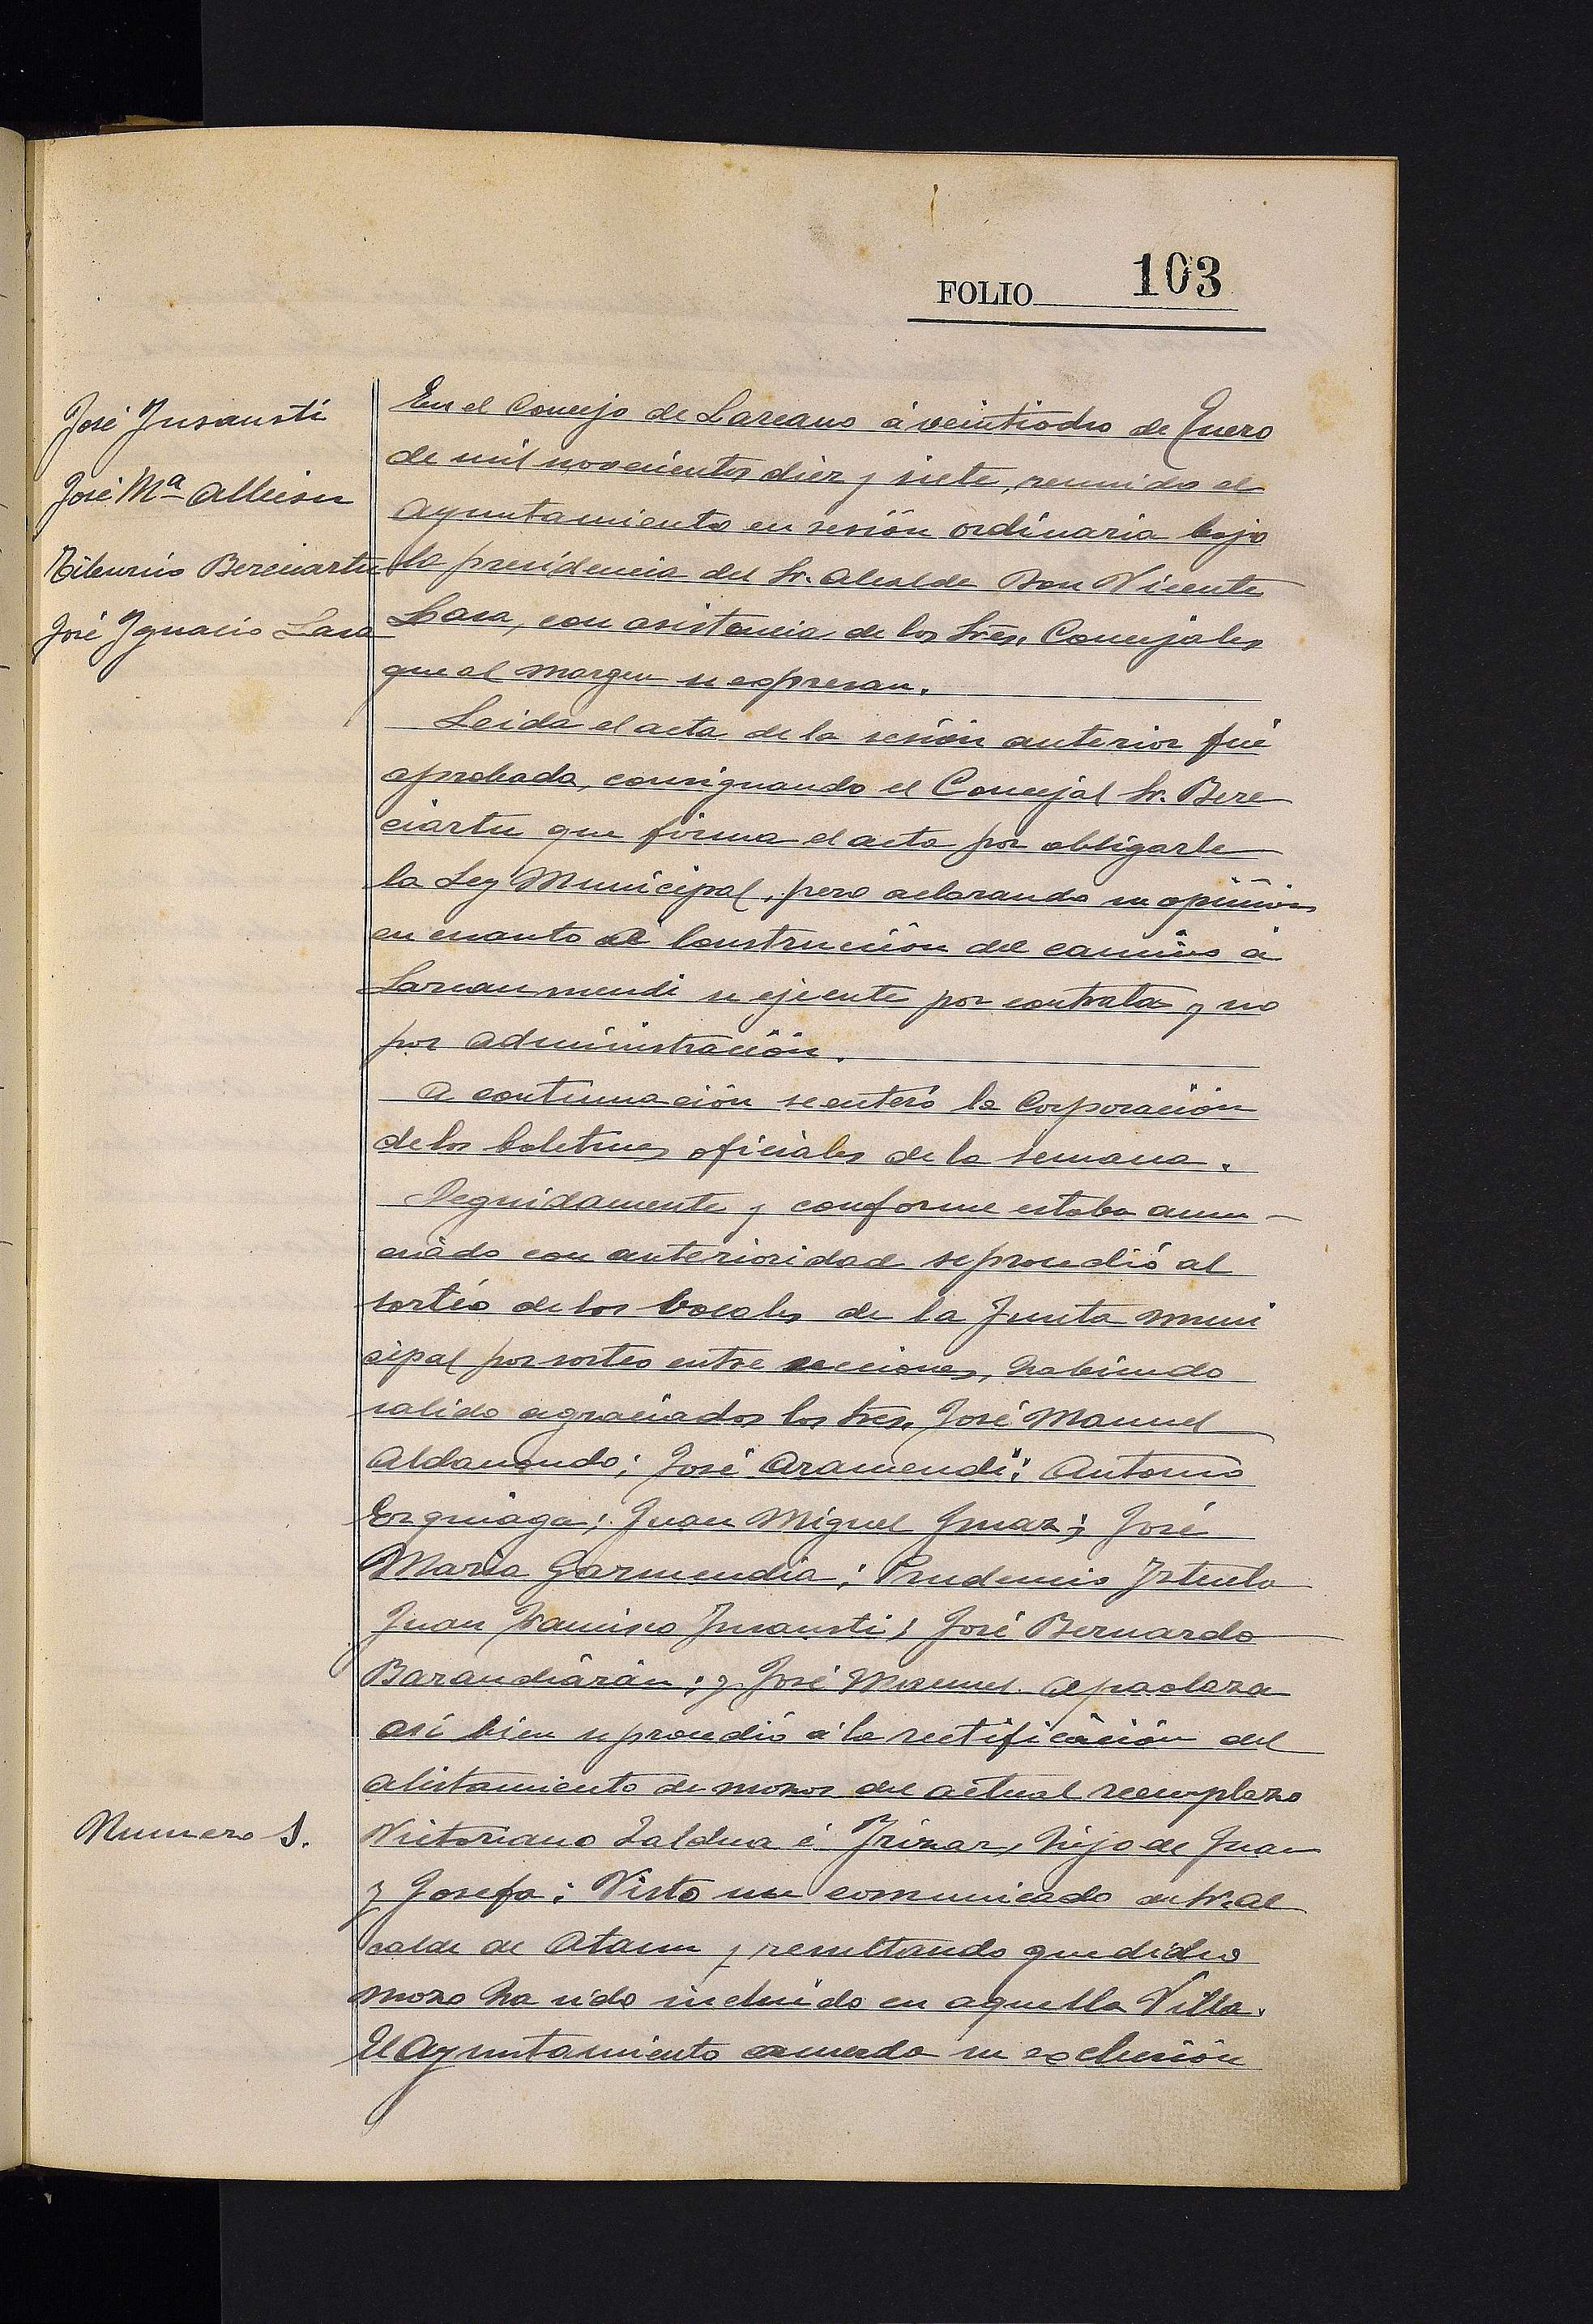 FOLIO 103
José Insausti
José Mª Albisu
Tiburcio Bereciartu
José Ignacio Lasa
En el Concejo de Lazcano á veintiocho de Enero
de mil novecientos diez y siete, reunido el
Ayuntamiento en sesión ordinaria bajo
la presidencia del Sr. Alcalde Don Vicente
Lasa, con asistencia de los Sres. Concejales
que al margen se expresan.
Leida el acta de la sesión anterior fué
aprobada, consignando el Concejal Sr. Bere
ciartu que firma el acta por obligarle
la Ley Municipal, pero aclarando su opinión
en cuanto al construcción del camino á
Lazcaumendi se ejecute por contrata y no
por administración.
A continuación se enteró la Corporación
de los boletines oficiales de la semana.
Seguidamente y conforme estaba anun-
ciado con anterioridad se procedió al
sorteo de los vocales de la Junta muni
cipal por sorteo entre secciones, habiendo
salido agraciados los Sres. José Manuel
Aldanondo; José Aramendi; Antonio
Ezquiaga; Juan Miguel Imaz; José
Maria Garmendia; Prudencio Iztueta
Juan Francisco Insausti; José Bernardo
Barandiarán; y José Manuel Apaolaza
así bien se procedió á la rectificación del
alistamiento de mozos del actual reemplazo
Numero 1.
Victoriano Zaldua é Irizar, hijo de Juan
y Josefa: Visto un comunicado del Sr. Al
calde de Ataun y resultando que dicho
mozo ha sido incluido en aquella Villa.
El Ayuntamiento acuerda su exclusión